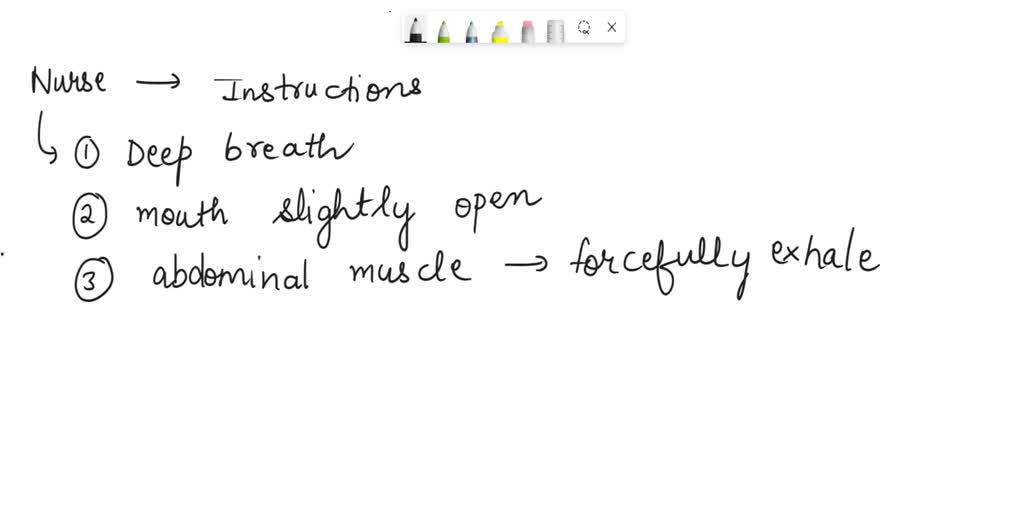 Nurse → Instructions
① Deep breath
② mouth slightly open
③ abdominal muscle → forcefully exhale